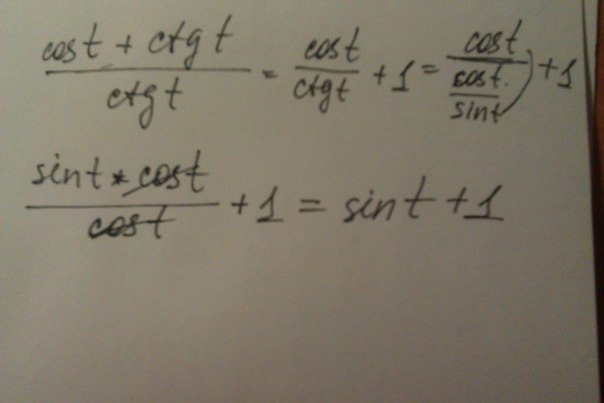 (cos t + ctg t)/(ctg t) = (cos t)/(ctg t) + 1 = (cos t)/((cos t)/(sin t)) + 1
(sin t * cos t)/(cos t) + 1 = sin t + 1